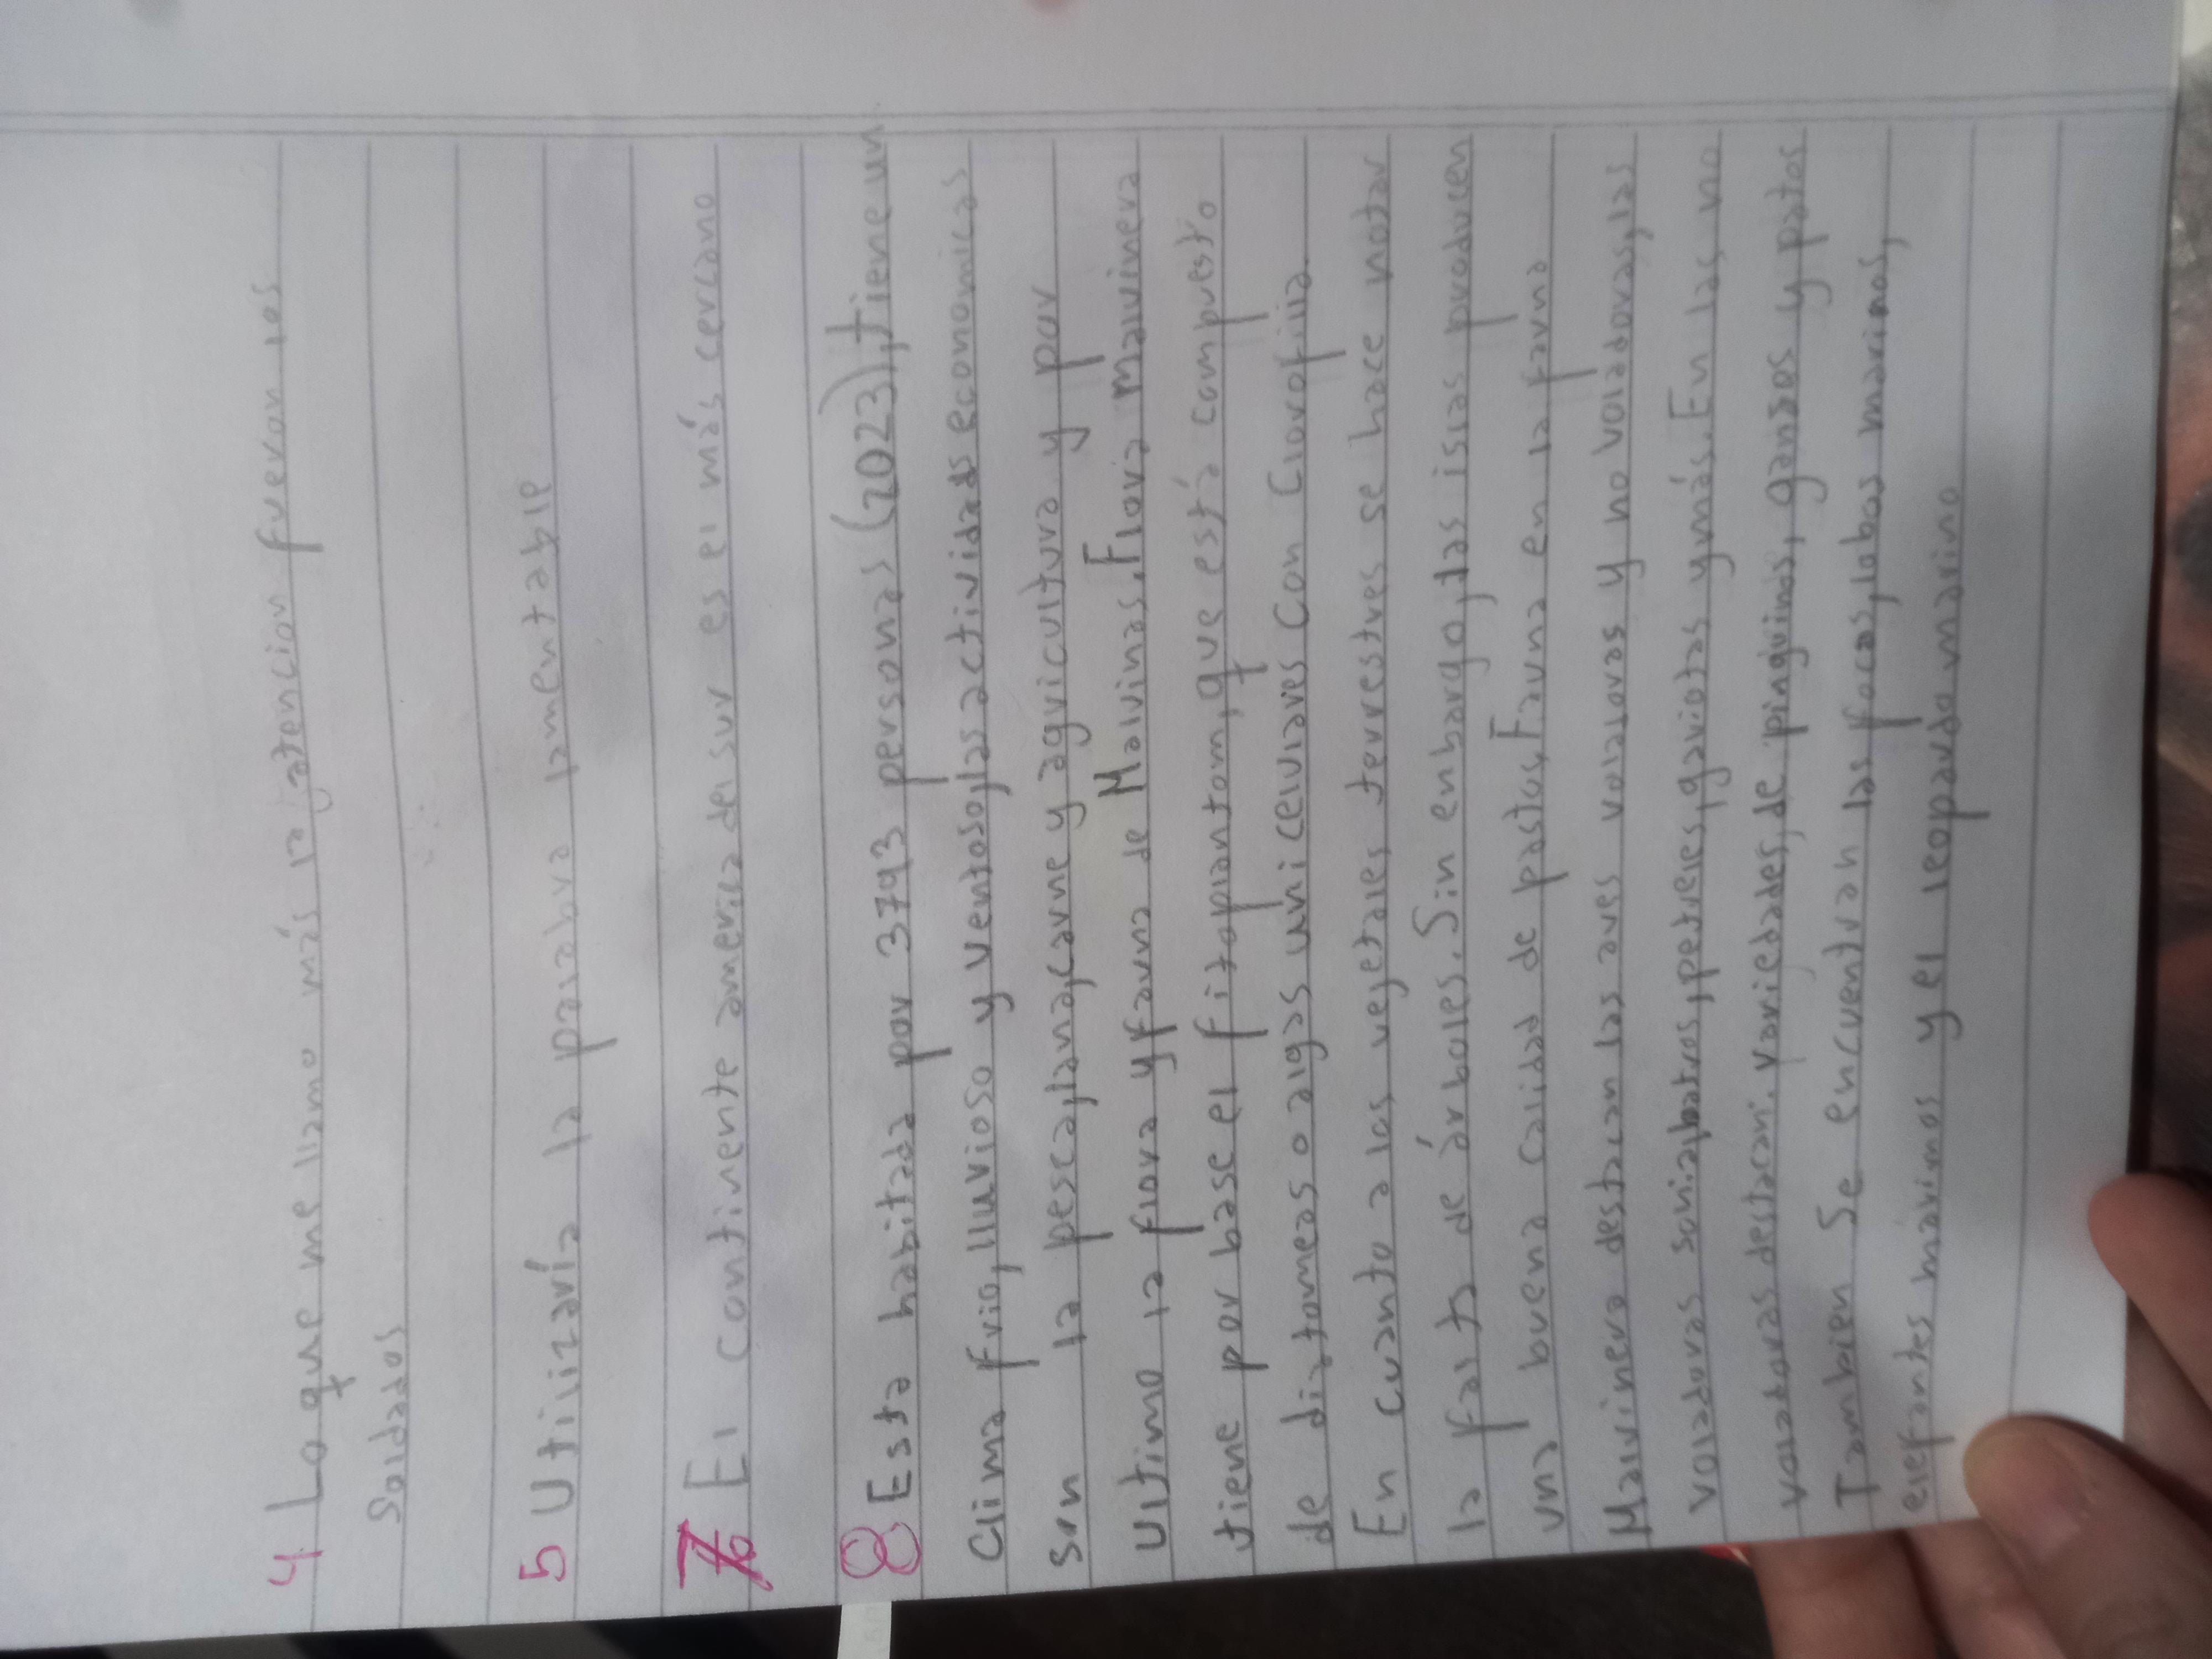 4 Lo que me llamo más la atencion fueron los
soldados
5 Utilizaría la palabra lamentable
7 El continente america del sur es el más cercano
8 Esta habitada por 3793 personas (2023), tiene un
clima frio, lluvioso y ventoso, las actividades economicas
son la pesca, lana, carne y agricultura y por
ultimo la flora y fauna de Malvinas. Flora malvinera
tiene por base el fitoplantom, que está compuesto
de diatomeas o algas unicelulares con clorofilia.
En cuanto a los vejetales terrestres se hace notar
la falta de árboles. Sin enbargo, las islas producen
una buena calidad de pastos. Fauna en la fauna
Malvinera destacan las aves voladoras y no voladoras, las
voladoras son: albatros, petreles, gaviotas y más. En las no
voladoras destacan. variedades, de pinguinos, gansos y patos
Tambien se encuentran las focas, lobos marinos,
elefantes marinos y el leopardo marino